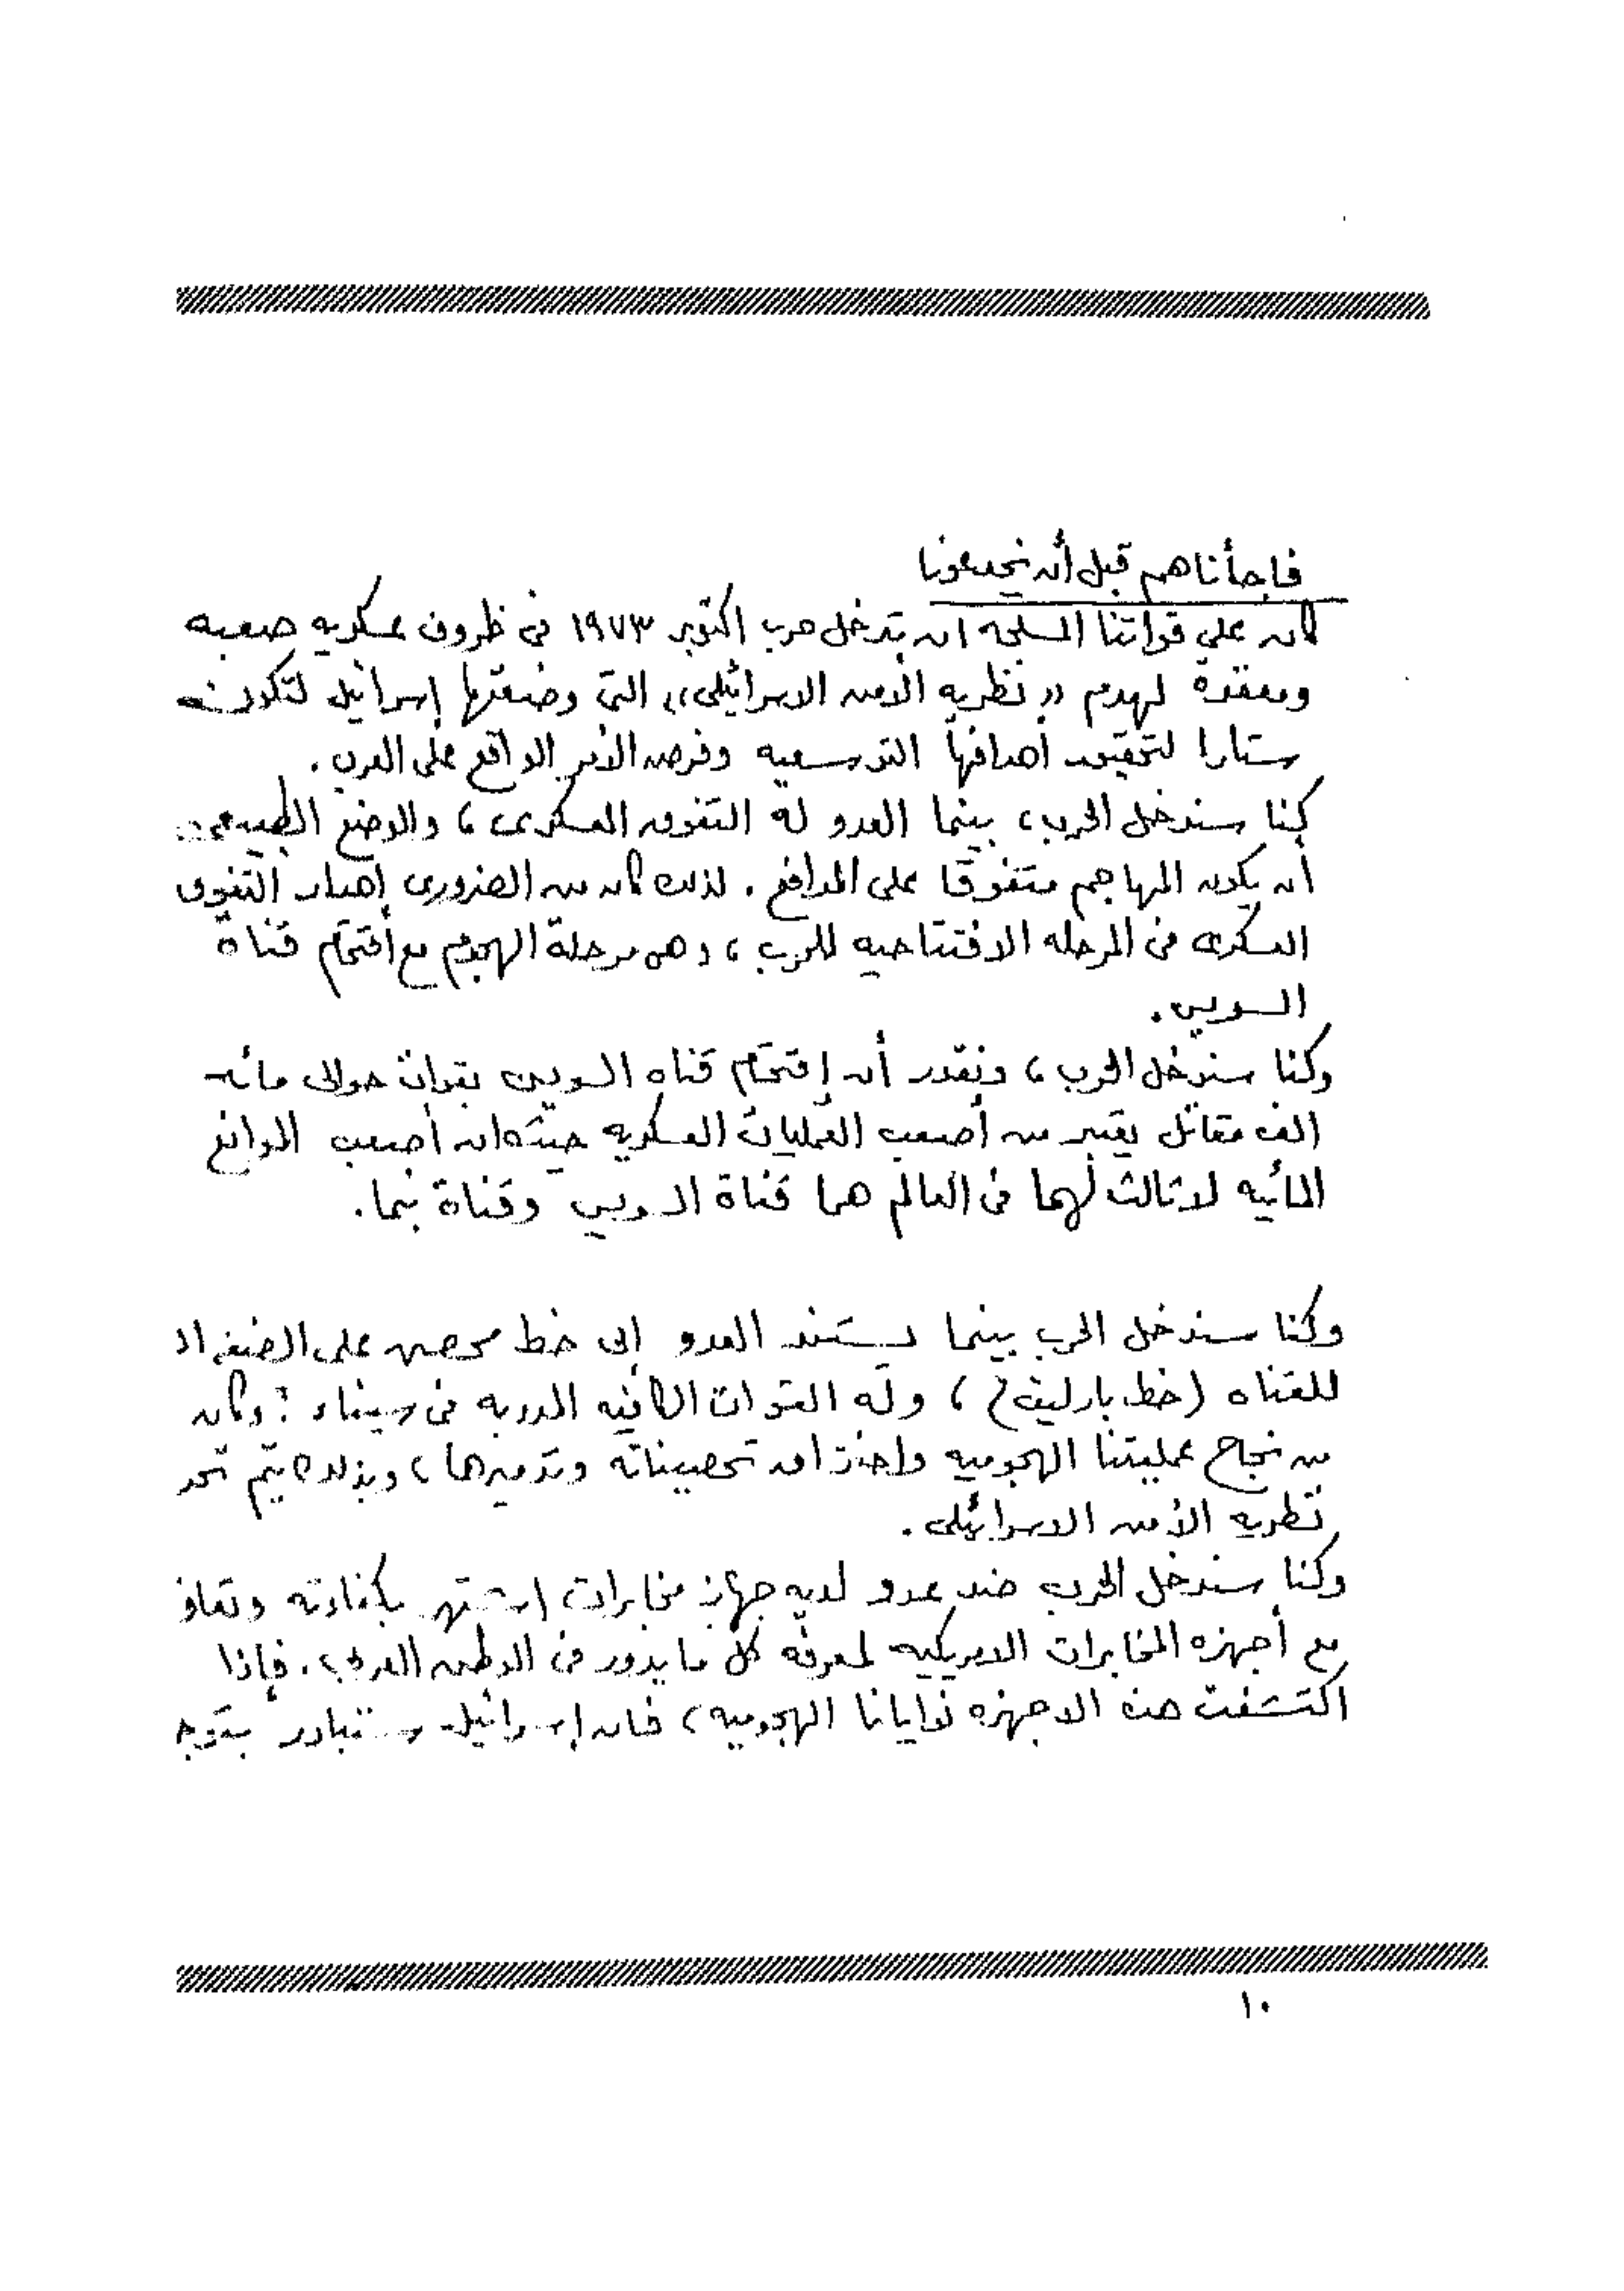 فاجأناهم قبل أن يخدعونا
كان على قواتنا المسلحه ان تدخل حرب اكتوبر ١٩٧٣ فى ظروف عسكريه صعبه
ومعقدة لهدم « نظريه الأمن الاسرائيلى »، التى وضعتها إسرائيل لتكون
ستارا لتحقيق أهدافها التوسعيه وفرض الأمر الواقع على العرب .
كنا سندخل الحرب، بينما العدو له التفوق العسكرى ، والوضع الطبيعى
أن يكون المهاجم متفوقا على المدافع . لذلك كان من الضرورى إهدار التفوق
العسكرى فى المرحله الافتتاحيه للحرب ، وهى مرحلة الهجوم مع أقتحام قناة
السويس .
وكنا سندخل الحرب ، ونقدر أن إقتحام قناه السويس بقوات حوالى مائه
الف مقاتل يعتبر من أصعب العمليات العسكريه حيث ان أصعب الموانع
المائيه لا ثالث لهما فى العالم هما قناة السويس وقناة بنما .
وكنا سندخل الحرب بينما يستند العدو إلى خط محصن على الضفه ال
للقناه (خط بارليف) ، وله القوات الكافيه المدربه فى سيناء : وكان
من نجاح عمليتنا الهجوميه واختراق تحصيناته وتدميرها ، وبذلك يتم تحد
نظريه الأمن الاسرائيلى .
وكنا سندخل الحرب ضد عدو لديه جهاز مخابرات اشتهر بكفاءته وتعاو
مع أجهزه المخابرات الامريكيه لمعرفه كل ما يدور فى الوطن العربى . فإذا
اكتشفت هذه الاجهزه نوايانا الهجوميه ، فان إسرائيل ستبادر بتوج
١٠